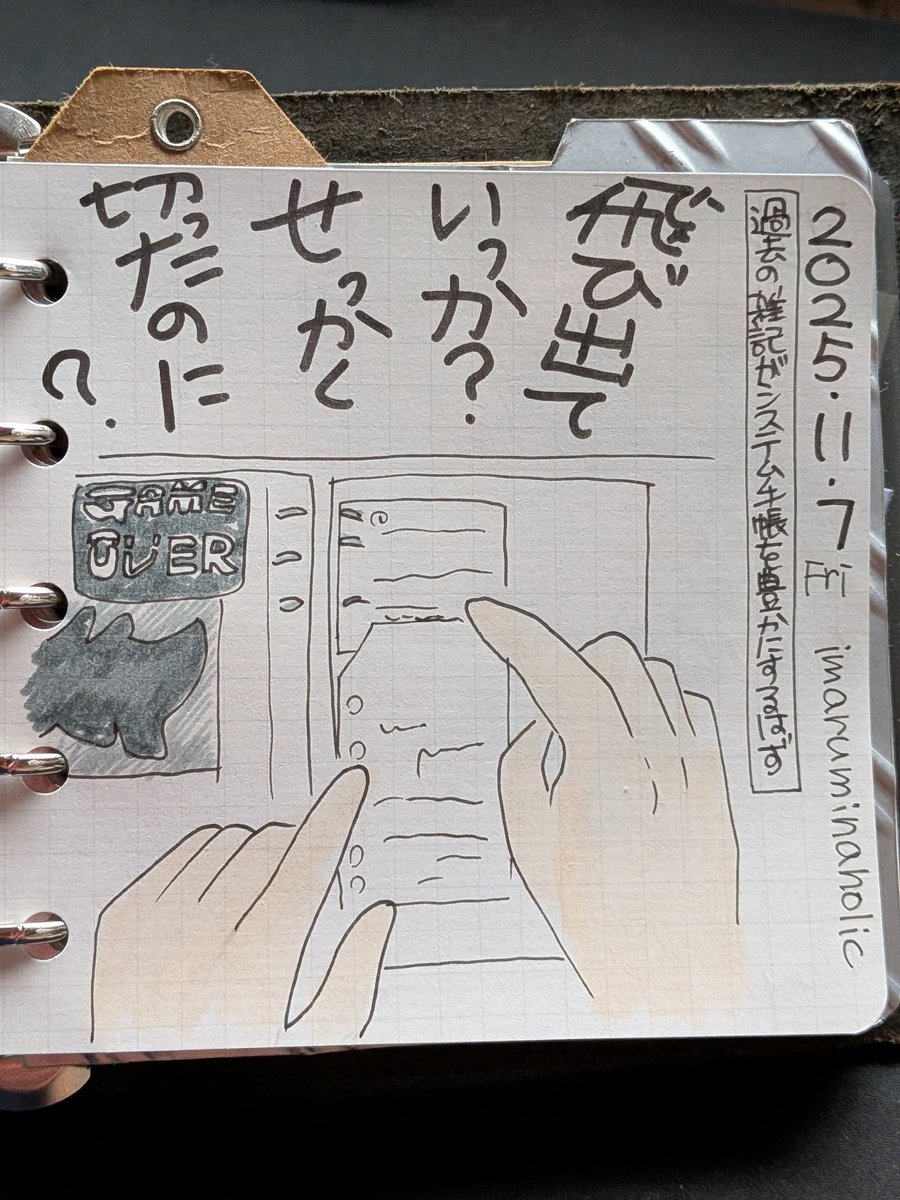 2025.11.7 Fri imaruminaholic
過去の雑記がシステム手帳を豊かにするはず
飛び出て
いっか?
せっかく
切ったのに
?
GAME
OVER